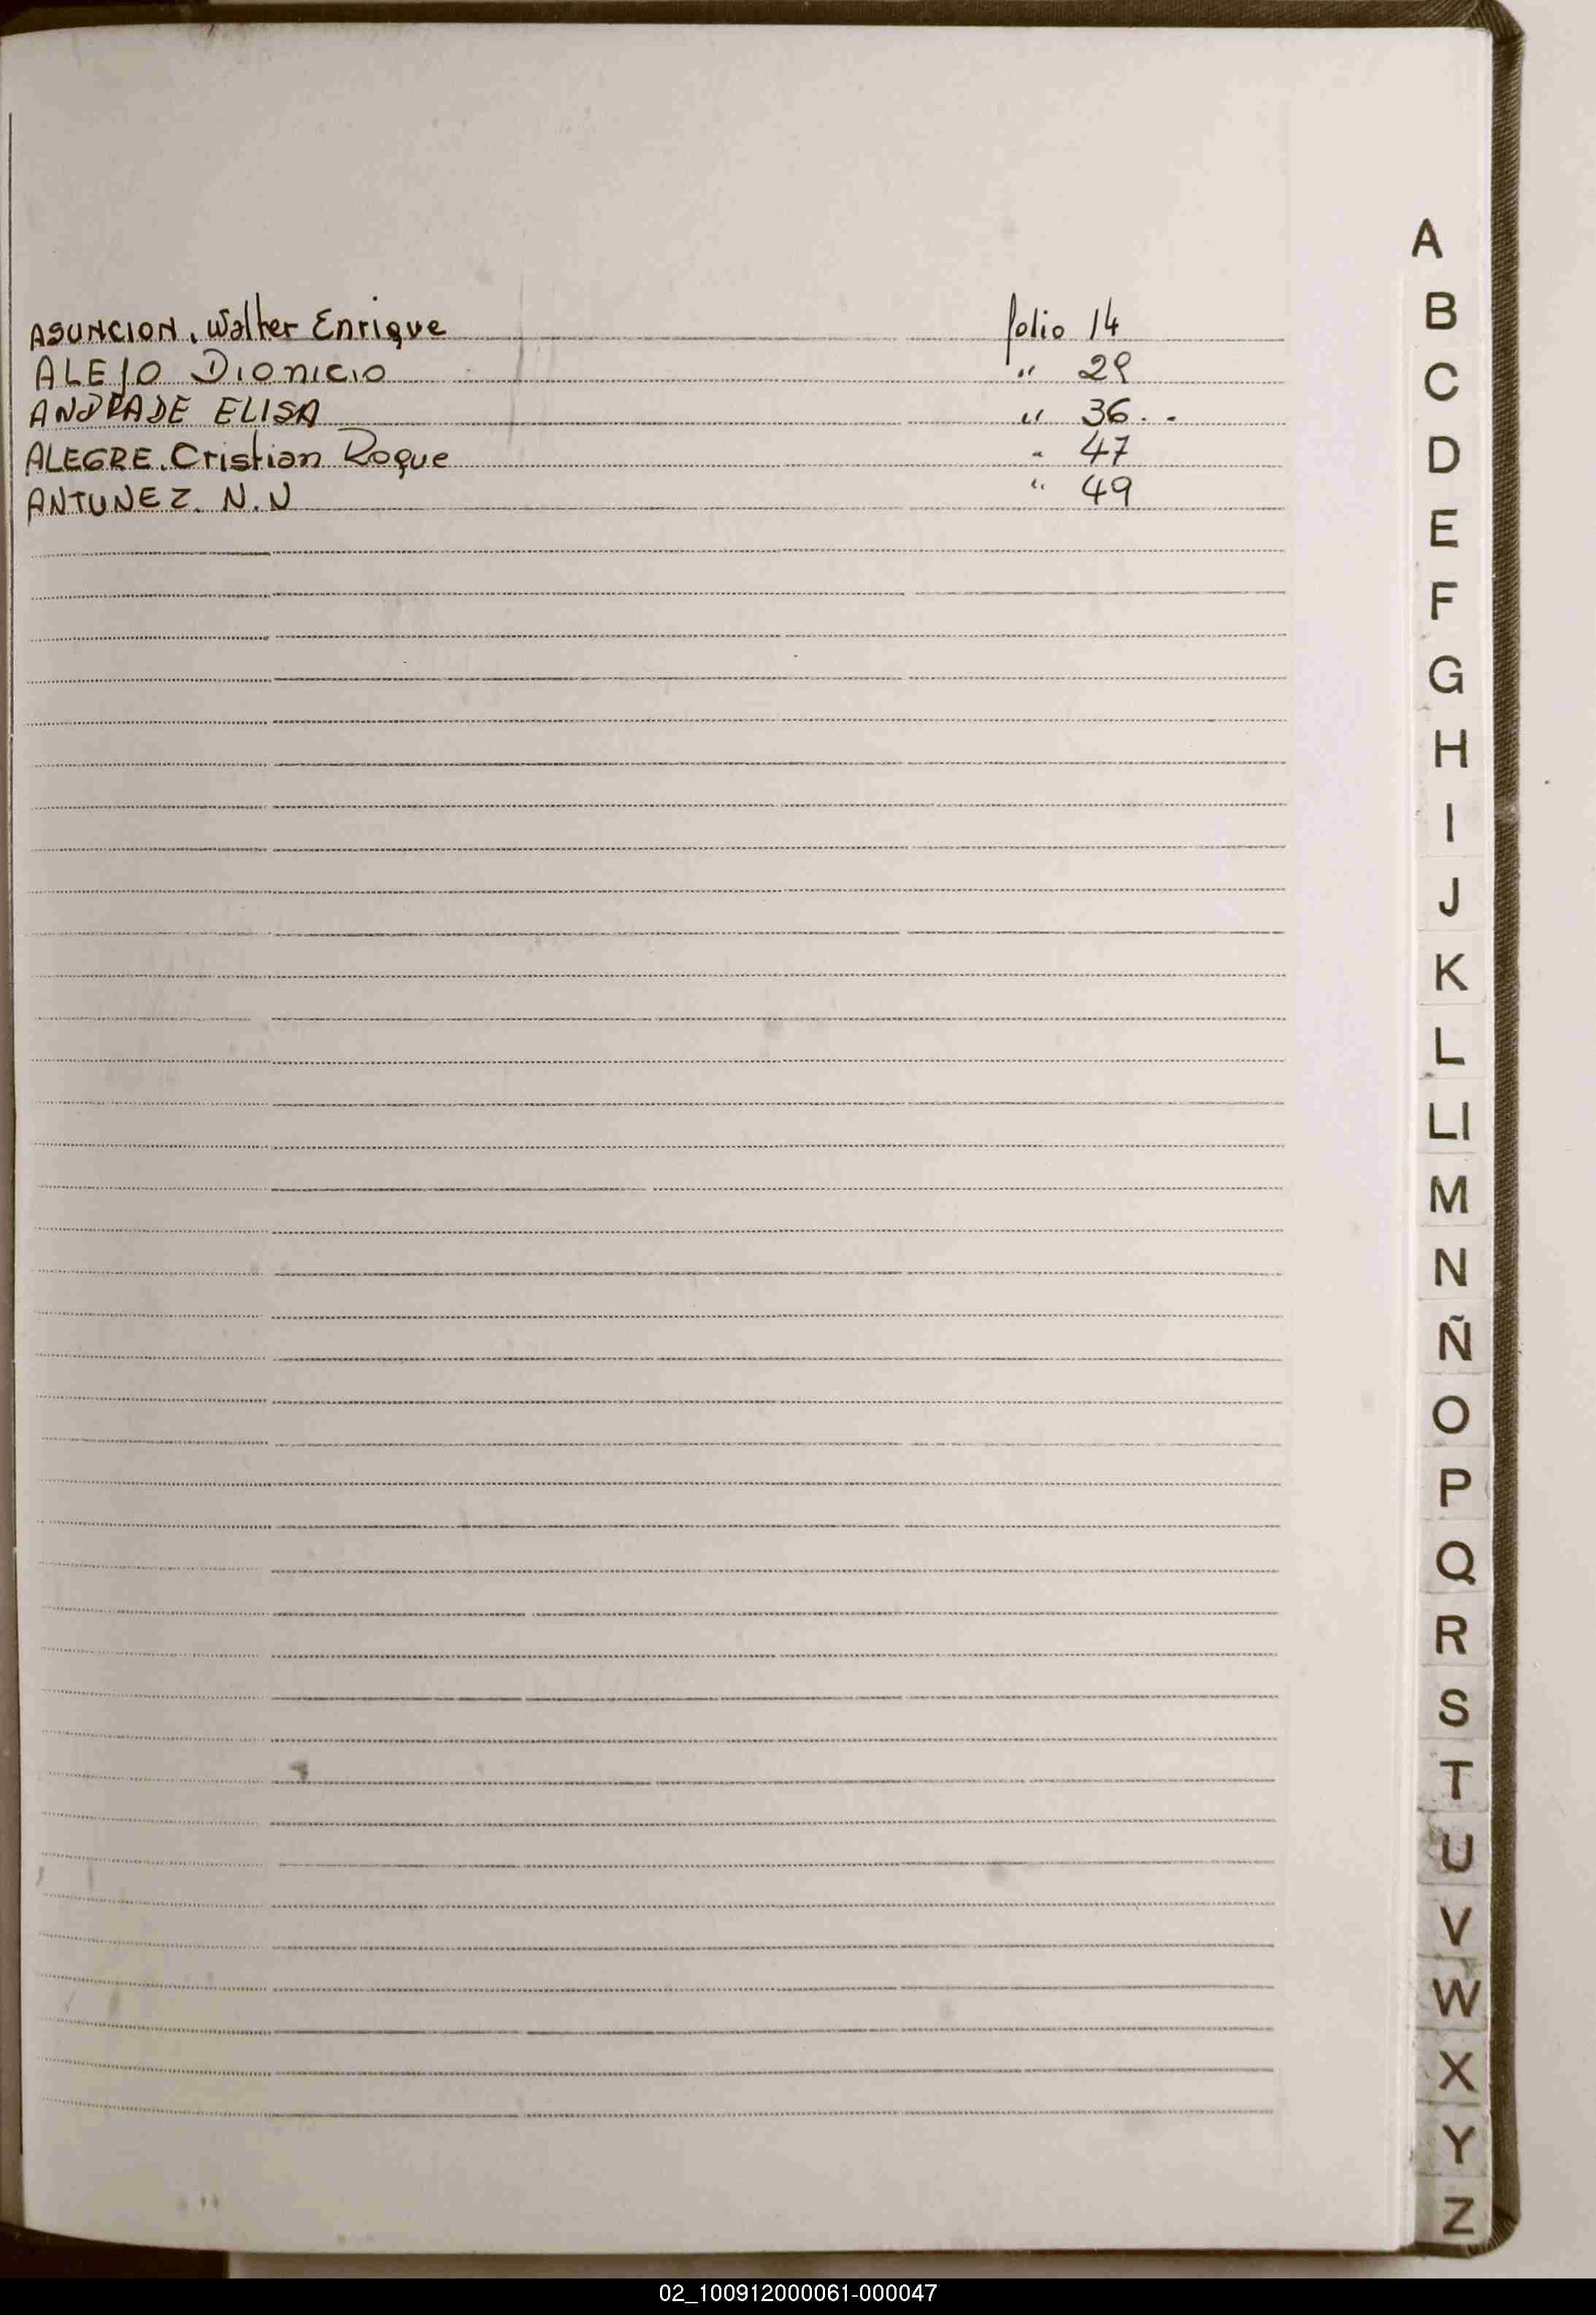 ASUNCION, Walter Enrique folio 14
ALEJO Dionicio " 29
ANDRADE ELISA " 36. -
ALEGRE. Cristian Roque " 47
ANTUNEZ. N.N " 49
A
B
C
D
E
F
G
H
I
J
K
L
Ll
M
N
Ñ
O
P
Q
R
S
T
U
V
W
X
Y
Z
02_100912000061-000047